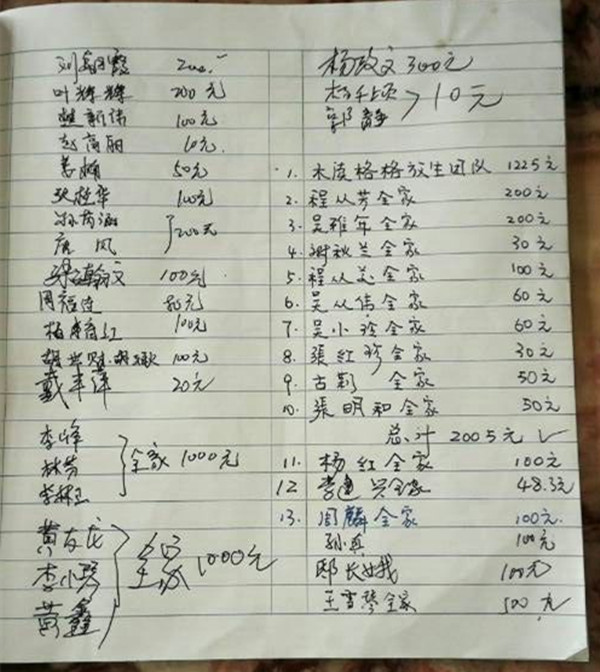 刘翠霞 200.
叶辉辉 200元
新伟 100元
赵丽 10元.
50元
张桂华 100元
唐风 } 200元
梁瀚文 100元
周 50元
柏春红 100元
100元
戴丰萍 20元
李峰
林芳 } 全家 1000元
黄友良
李小琴 } 全家 1000元
黄鑫
杨政文 300元
郭静 > 10元
1. 木渎格格放生团队 1225元
2. 程从芳全家 200元
3. 吴雅年全家 200元
4. 谢秋兰全家 30元
5. 程从美全家 100元
6. 吴从伟全家 60元
7. 吴小玲全家 60元
8. 張红珍全家 30元
9. 古莉 全家 50元
10. 張明和全家 50元
总计 2005元 ✓
11. 杨红全家 100元
12 李建兴全家 48.3元
13. 周麟全家 100元.
孙真 100元
邸长娥 100元
王雪琴全家 500元